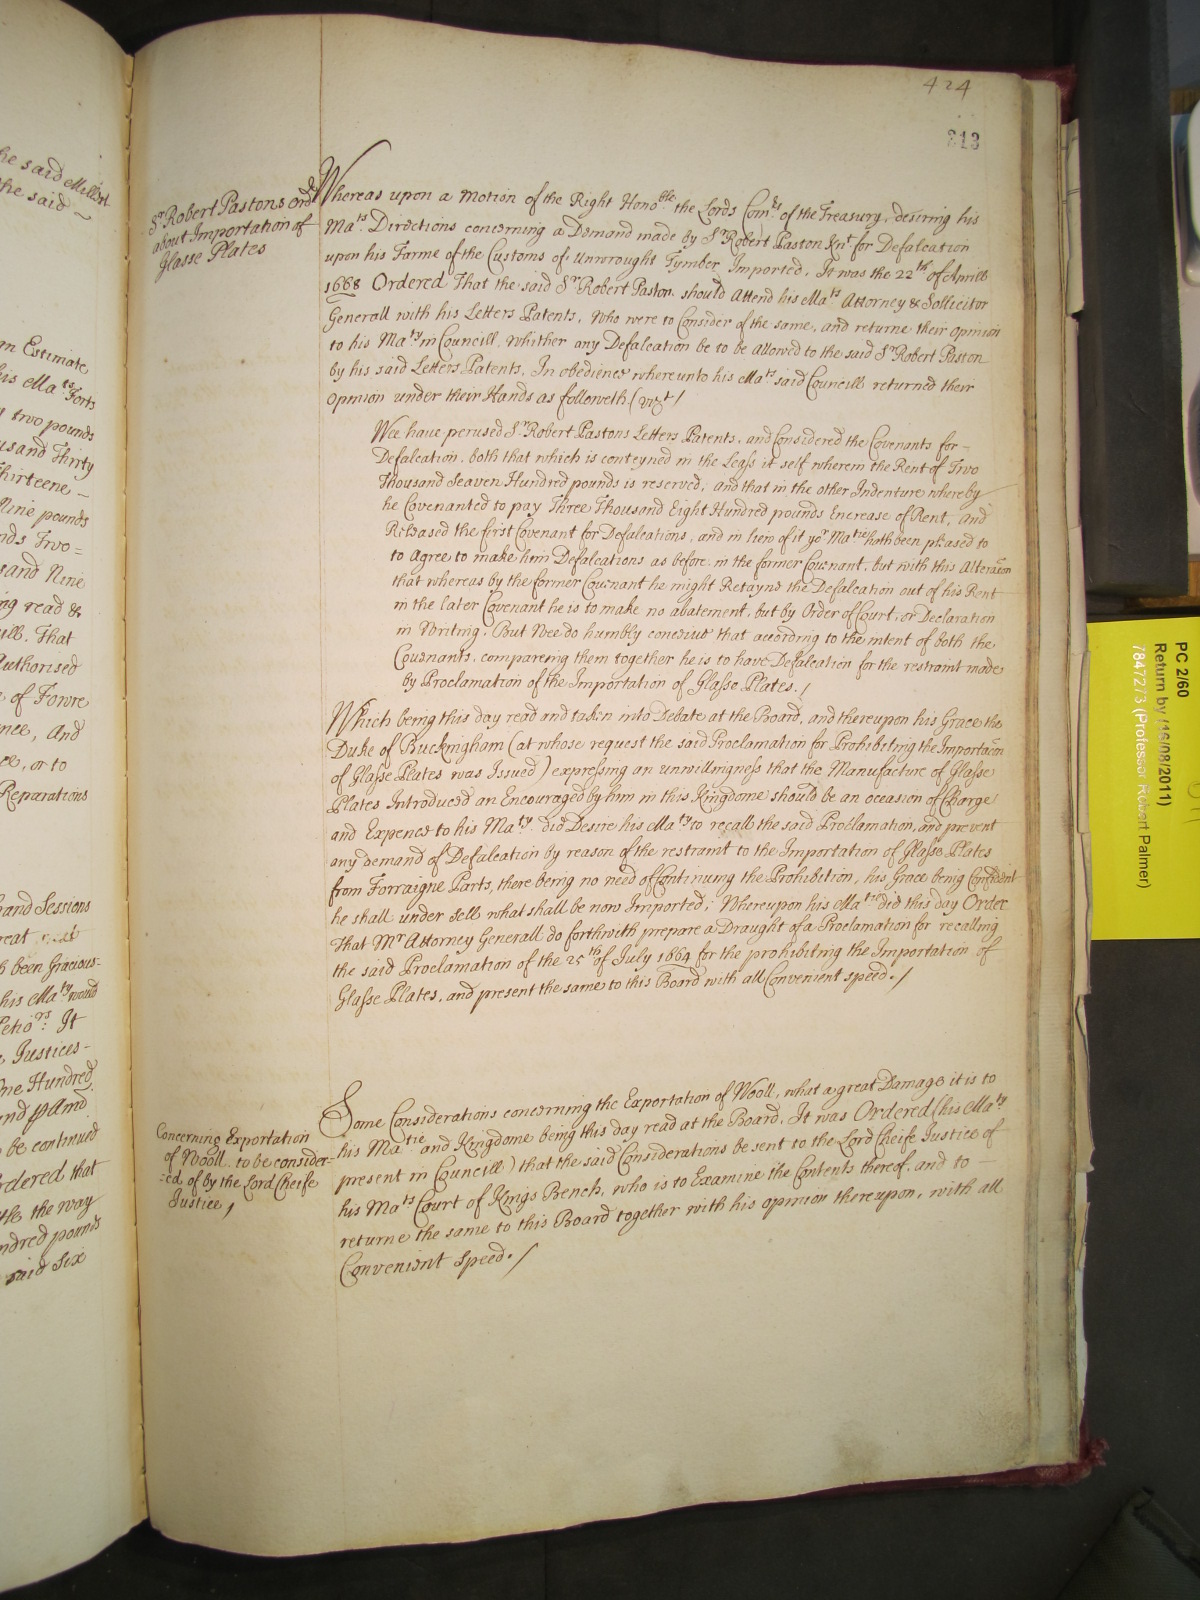 424
213
Sr Robert Pastons Ordr
about Importation of
Glasse Plates
Whereas upon a Motion of the Right Honoble the Lords Comrs of the Treasury, desiring his
Mats Directions concerning a Demand made by Sr Robert Paston Knt for Defalcation
upon his Farme of the Customs of unwrought Tymber Imported, It was the 22th of Aprill
1668 Ordered That the said Sr Robert Paston should Attend his Mats Attorney & Sollicitor
Generall with his Letters Patents, who were to Consider of the same, and returne their opinion
to his Maty in Councill, whither any Defalcation be to be allowed to the said Sr Robert Paston
by his said Letters Patents, In obedience whereunto his Mats said Councill returned their
opinion under their Hands as followeth (vizt /
Wee have perused Sr Robert Pastons Letters Patents, and Considered the Covenants for -
Defalcation, both that which is conteyned in the Lease it self wherein the Rent of Two
Thousand Seaven Hundred pounds is reserved, and that in the other Indenture whereby
he Covenanted to pay Three Thousand Eight Hundred pounds Encrease of Rent, and
Released the first Covenant for Defalcations, and in liew of it yor Matie hath been pleased to
to Agree to make him Defalcations as before in the former Covenant, but with this Alteracon
that whereas by the former Covenant he might Retayne the Defalcation out of his Rent
in the later Covenant he is to make no abatement, but by Order of Court, or Declaration
in Writing, But Wee do humbly conceive that according to the intent of both the
Covenants, compareing them together he is to have Defalcation for the restraint made
by Proclamation of the Importation of Glasse Plates. /
Which being this day read and taken into Debate at the Board, and thereupon his Grace the
Duke of Buckingham (at whose request the said Proclamation for Prohibiting the Importacon
of Glasse Plates was Issued) expressing an unwillingness that the Manufacture of Glasse
Plates Introduced an Encouraged by him in this Kingdome should be an occasion of Charge
and Expence to his Maty. did Desire his Maty to recall the said Proclamation, and prevent
any demand of Defalcation by reason of the restraint to the Importation of Glasse Plates
from Forraigne Parts, there being no need of Continuing the Prohibition, his Grace being Confident
he shall under sell what shall be now Imported; Whereupon his Matie did this day Order
That Mr Attorney Generall do forthwith prepare a Draught of a Proclamation for recalling
the said Proclamation of the 25th of July 1664 for the prohibiting the Importation of
Glasse Plates, and present the same to this Board with all Convenient speed. /
Concerning Exportation
of Wooll to be consider-
:ed of by the Lord Cheife
Justice /
Some Considerations concerning the Exportation of Wooll, what a great Damage it is to
his Matie and Kingdome being this day read at the Board, It was Ordered (his Maty
present in Councill) that the said Considerations be sent to the Lord Cheife Justice of
his Mats Court of Kings Bench, who is to Examine the Contents thereof, and to -
returne the same to this Board together with his opinion thereupon, with all
Convenient speed. /
he said
the said ~
an Estimate
his Mats Forts
two pounds
usand Thirty
Thirteene -
Nine pounds
nds Two=
sand Nine
ng read &
ill. That
Authorised
e of Fowre
nee, And
ee, or to
Reparations
rand Sessions
reat
h been Gracious-
his Maty would
Petiors: It
e Justices-
One Hundred
be continued
rdered that
the way
ndred pounds
said Six
PC 2/60
Return by (16/08/2011)
7847273 (Professor Robert Palmer)